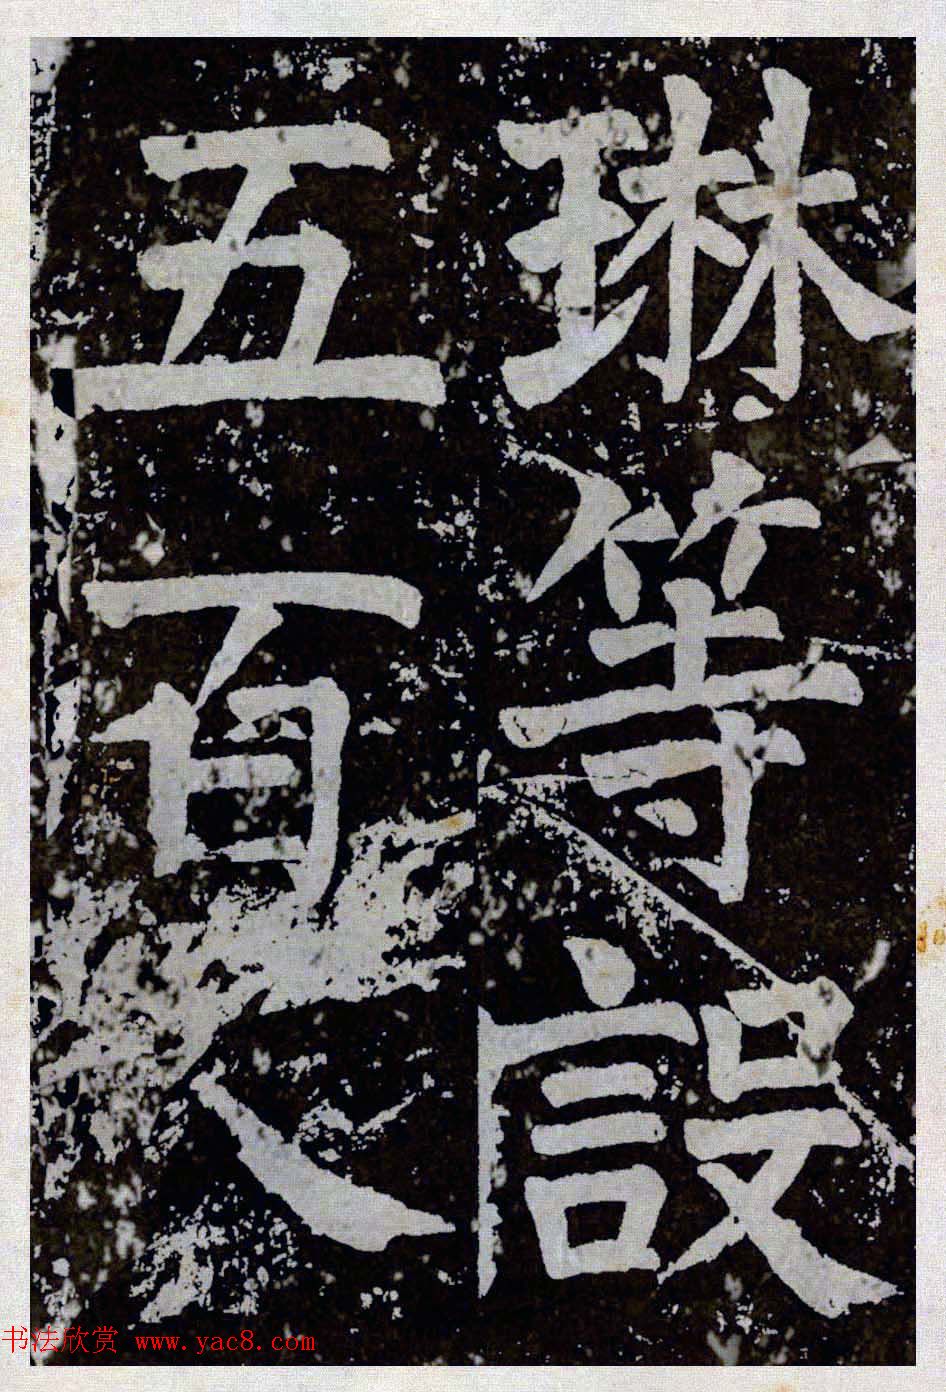 琳等設
五百人
书法欣赏 www.yac8.com